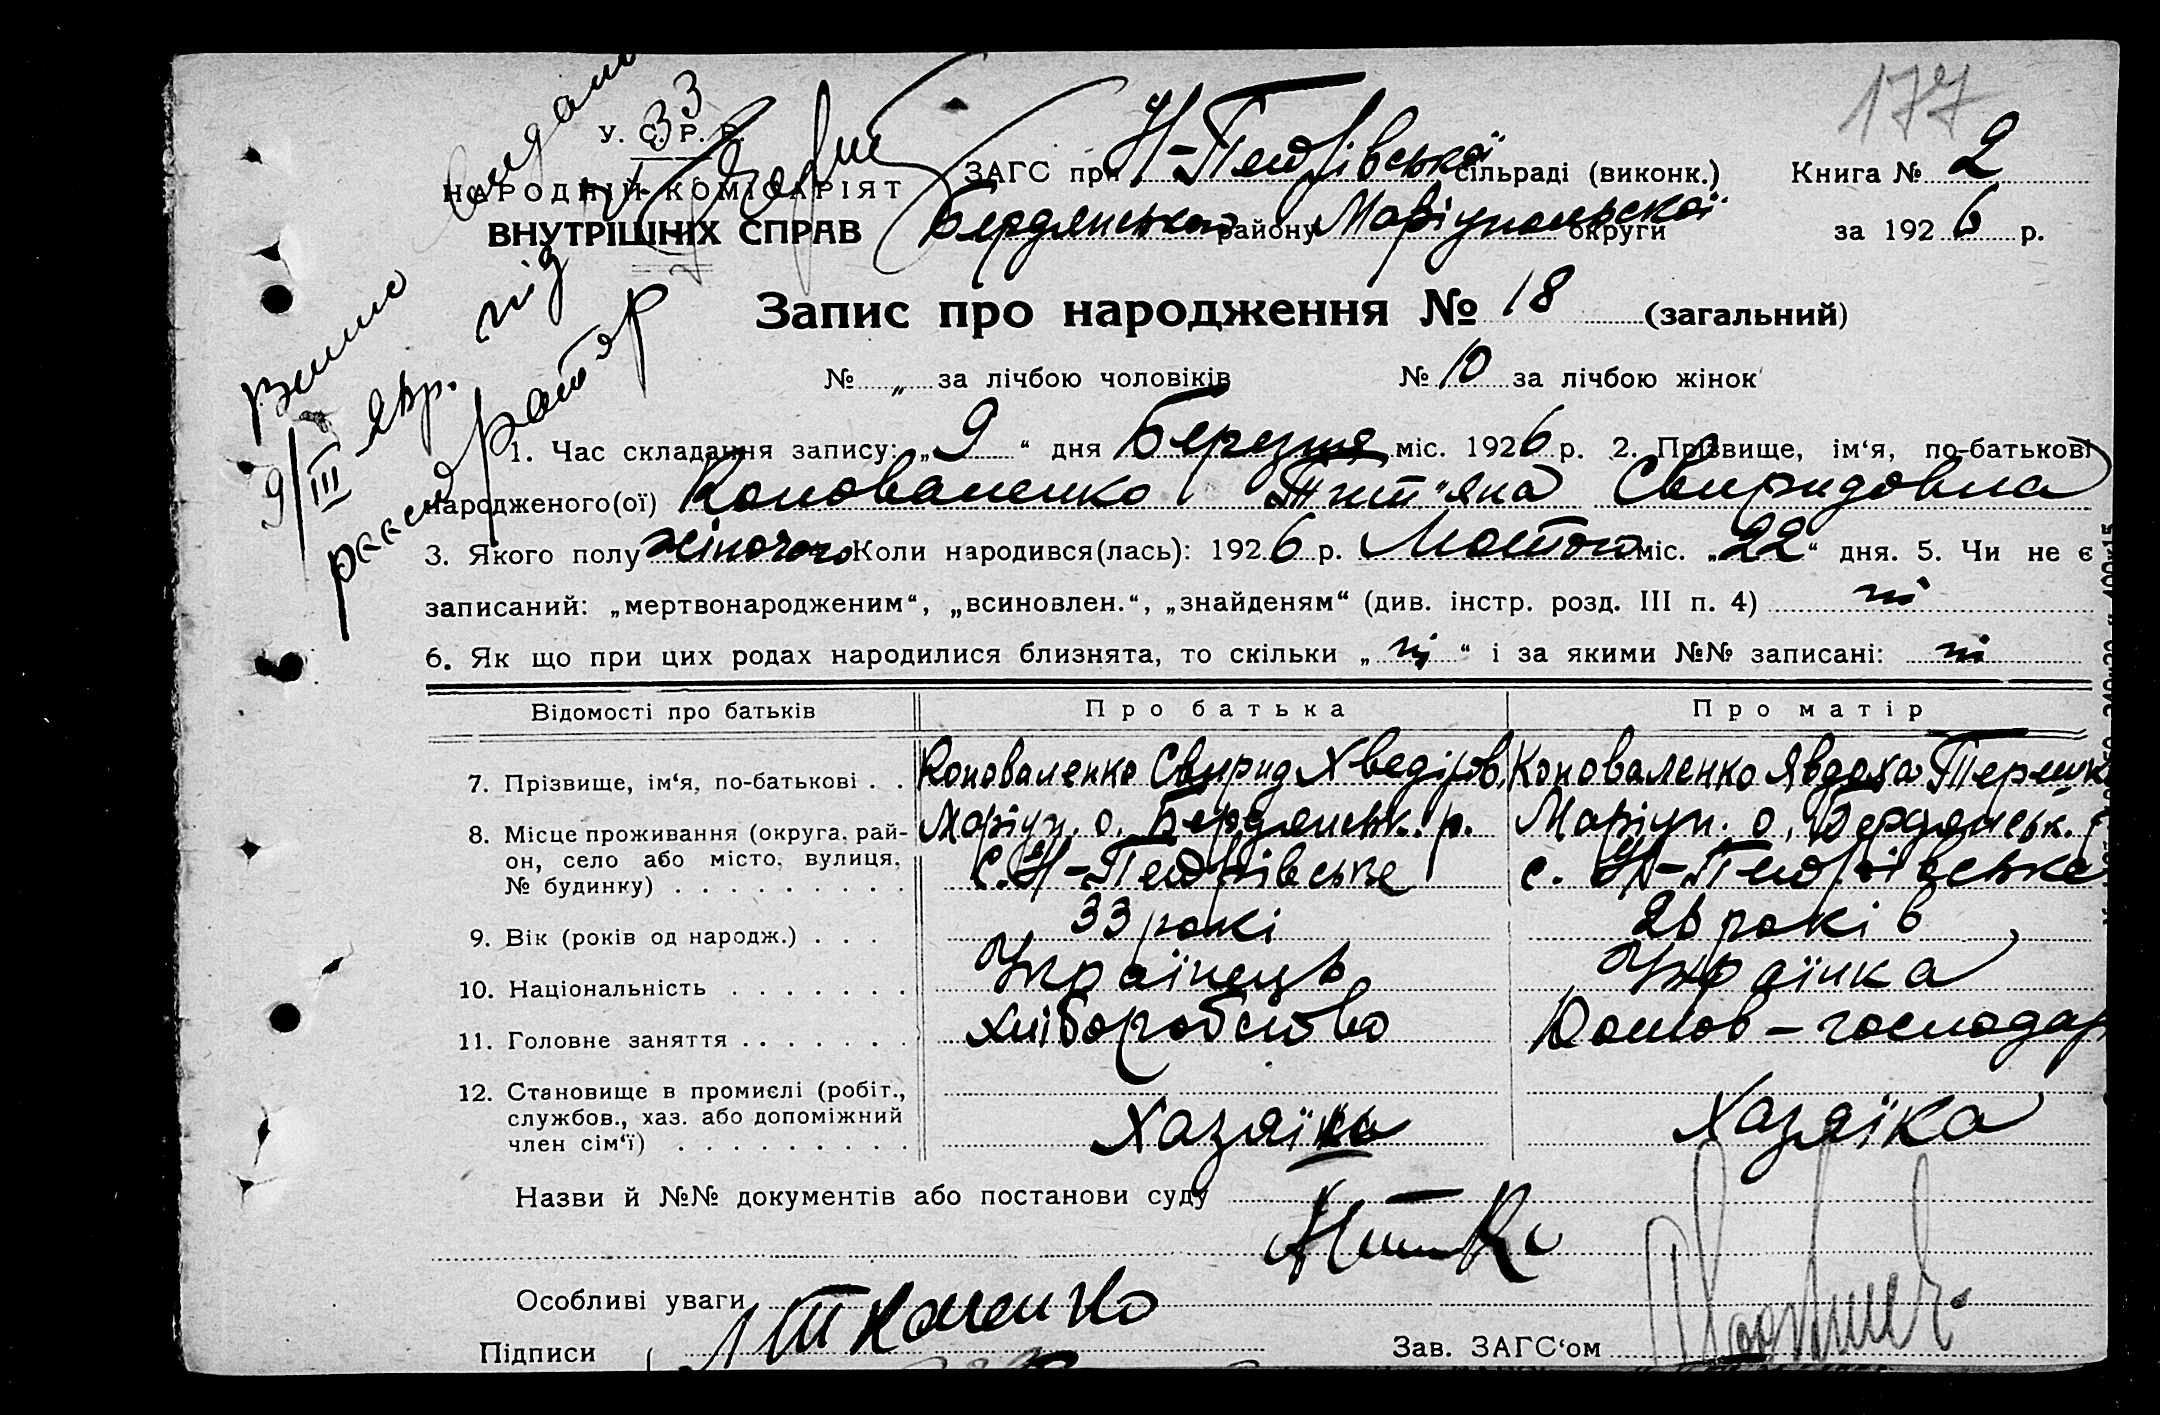 177
У. С. Р. Р.
33
НАРОДНІЙ КОМІСАРІЯТ
ВНУТРІШНІХ СПРАВ
ЗАГС при сільраді (виконк.) Книга № 2
Бердянського району Маріупольскої округи за 1926 р.
Запис про народження № 18 (загальний)
№ „ за лічбою чоловіків № 10 за лічбою жінок
9/III
1. Час складання запису: „9“ дня Березня міс. 1926 р. 2. Прізвище, ім‘я, по-батькові
народженого(ої) Коноваленко Тит"яна Свиридовна
3. Якого полу жіночого Коли народився(лась): 1926 р. Лютого міс. „22“ дня. 5. Чи не є
записаний: „мертвонародженим“, „всиновлен.“, „знайденям“ (див. інстр. розд. III п. 4) ні
6. Як що при цих родах народилися близнята, то скільки „ні“ і за якими №№ записані: ні
Відомості про батьків Про батька Про матір
7. Прізвище, ім‘я, по-батькові . . Коноваленко Свирид Хведіров. Коноваленко Явдоха
8. Місце проживання (округа, рай-он, село або місто, вулиця, № будинку) Маріуп. о. Бердянськ. р. Маріуп. о. Бердянськ. р
9. Вік (років од народж.) . . . 33 рокі 26 років
10. Національність Українець Українка
11. Головне заняття Хліборобство Домов-господар
12. Становище в промислі (робіт., службов., хаз. або допоміжний член сім‘ї) Хазяїнь Хазяїка
Назви й №№ документів або постанови суду
Особливі уваги
Підписи Ткаченко Зав. ЗАГС‘ом